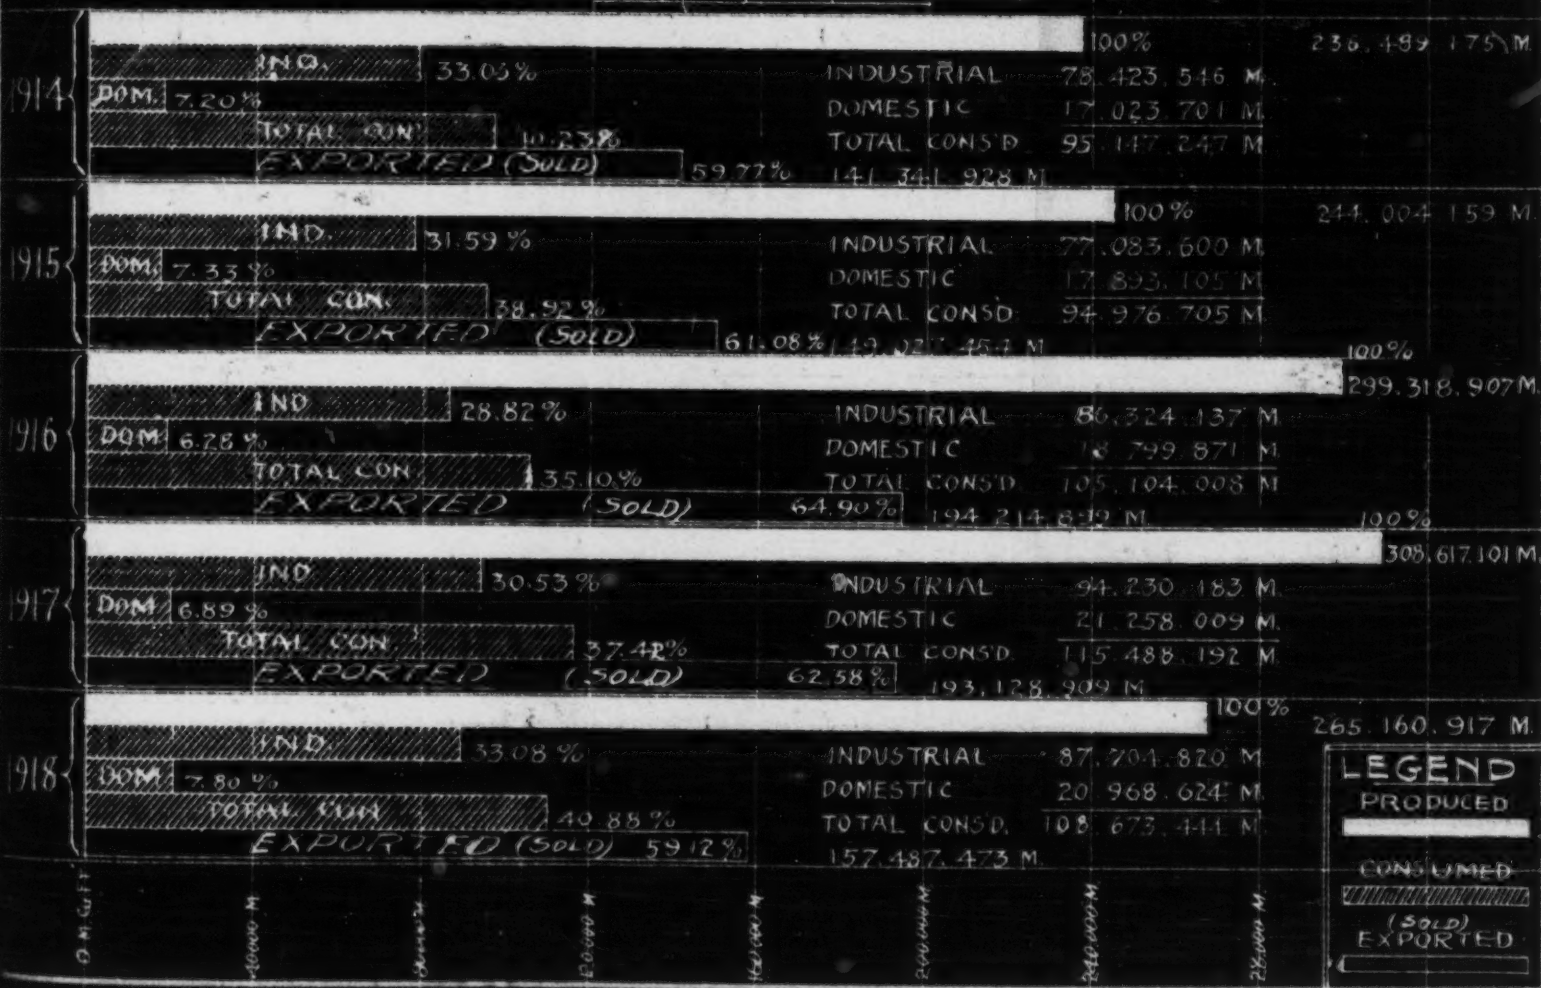 1914
100%
236.489.175 M
IND.
33.03%
INDUSTRIAL 78.423.546 M.
DOM. 7.20%
DOMESTIC 17.023.701 M
TOTAL CON
%
TOTAL CONS'D. 95.447.247 M
EXPORTED (SOLD)
59.77% 141.341.928 M
1915
100%
244.004.159 M
IND.
31.59%
INDUSTRIAL 77.083.600 M
DOM. 7.33%
DOMESTIC 17.893.105 M
TOTAL CON.
38.92%
TOTAL CONSD. 94.976.705 M
EXPORTED (SOLD)
61.08% M
1916
100%
299.318.907 M.
IND
28.82%
INDUSTRIAL 86.324.137 M
DOM 6.28%
DOMESTIC 18.799.871 M
TOTAL CON.
35.10%
TOTAL CONS'D. 105.104.008 M
EXPORTED (SOLD) 64.90%
M
1917
100%
308.617.101 M
IND
30.53%
INDUSTRIAL 94.230.183 M.
DOM 6.89%
DOMESTIC 21.258.009 M.
TOTAL CON.
37.42%
TOTAL CONS'D. 115.488.192 M
EXPORTED (SOLD) 62.58%
193.128.909 M
1918
100%
265.160.917 M.
IND.
33.08%
INDUSTRIAL 87.704.820 M
DOM 7.80%
DOMESTIC 20.968.624 M
TOTAL CON
40.88%
TOTAL CONS'D. 108.673.444 M
EXPORTED (SOLD) 59.12%
157.487.473 M
LEGEND
PRODUCED
CONSUMED
(SOLD)
EXPORTED